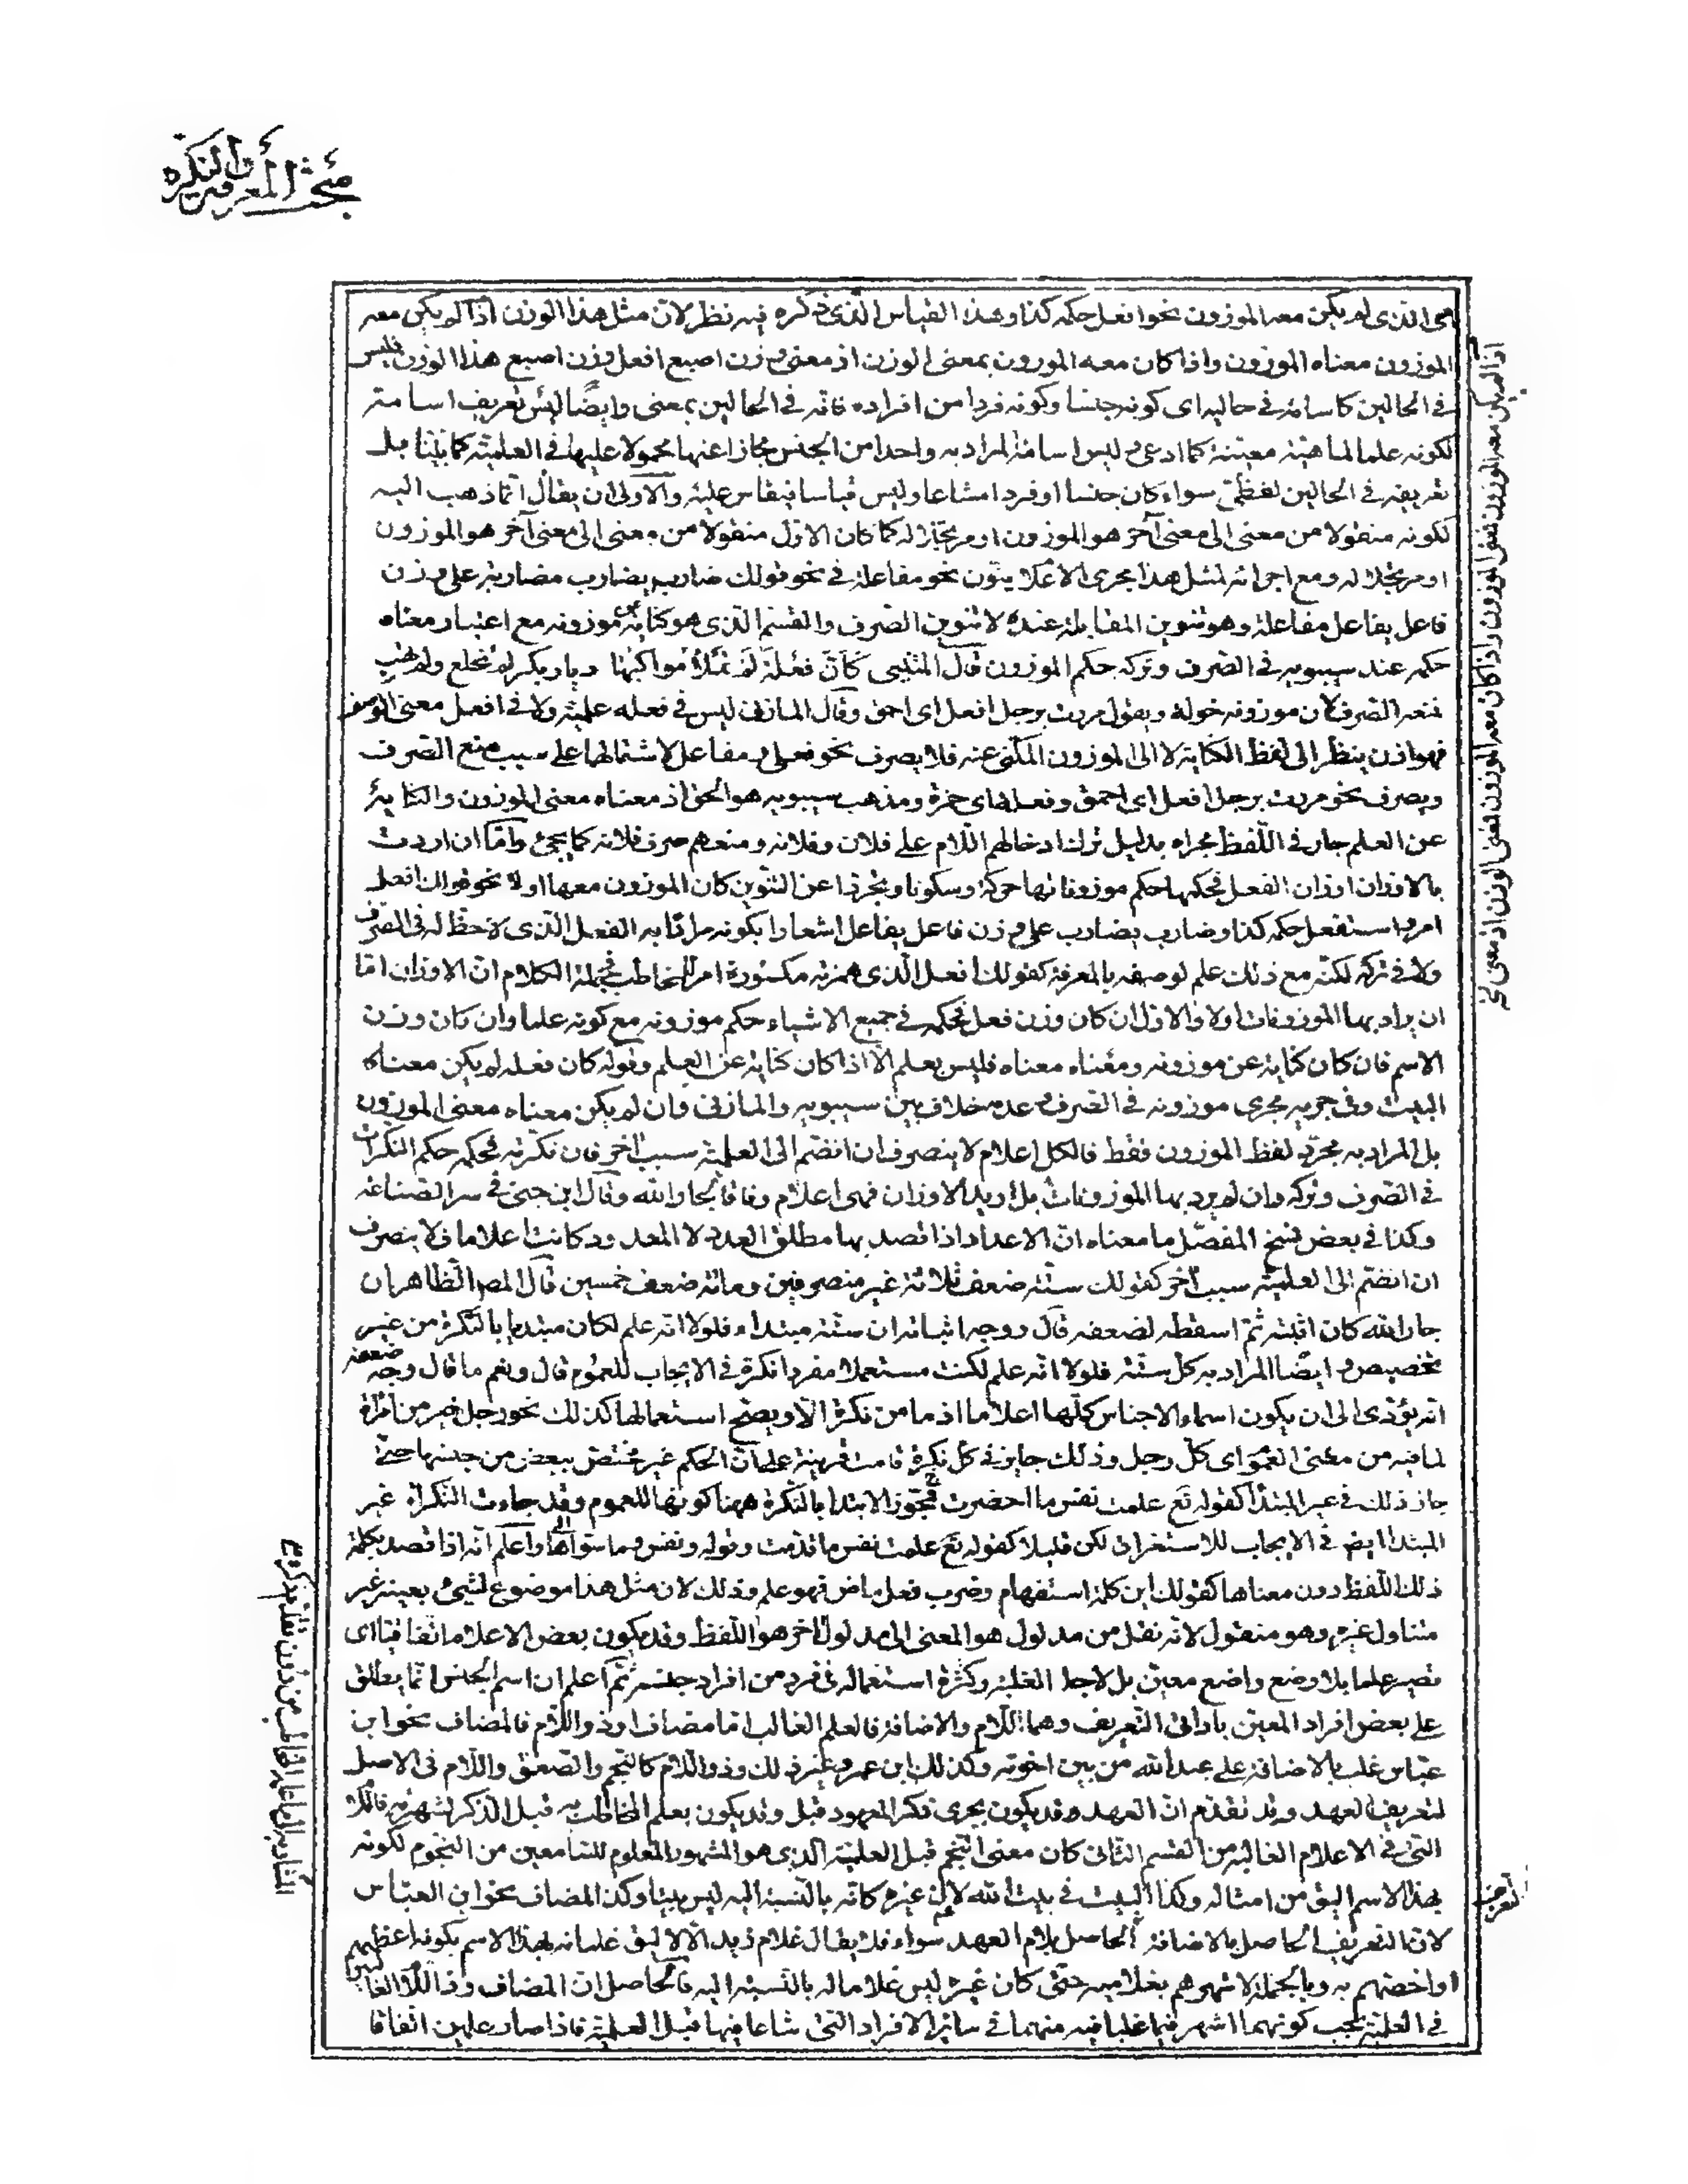 مبحث المعرفة والنكرة
هى الذى لم يكن معه الموزون نحو افعل حكمه كذا وهذا القياس الذى ذكره فيه نظر لان مثل هذا الوزن اذا لم يكن معه
الموزون معناه الموزون واذا كان معه الموزون بمعنى الوزن اذ معنى وزن اصبع افعل وزن اصبع هذا الوزن فليس
فى الحالين كاسامة فى حاليه اى كونه جنسا وكونه فردا من افراده فانه فى الحالين بمعنى وايضا ليس تعريف اسامة
لكونه علما لماهية معينة كما ادعى و ليس اسامة المراد به واحدا من الجنس مجازا عنها محمولا عليها فى العلمية كما بينا بل
تعريفه فى الحالين لفظى سواء كان جنسا او فردا مشاعا وليس قياسا فيقاس عليه والاولى ان يقال انما ذهب اليه
لكونه منقولا من معنى الى معنى آخر هو الموزون او مرتجلا له كما كان الاول منقولا من معنى الى معنى آخر هو الموزون
او مرتجلا له ومع اجرائه لمثل هذا مجرى الاعلام ينون نحو مفاعلة فى نحو قولك ضارب يضارب مضاربة على وزن
فاعل يفاعل مفاعلة وهو تنوين المقابلة عنده لا تنوين الصرف والقسم الذى هو كناية عن موزونه مع اعتبار معناه
حكمه عند سيبويه فى الصرف وتركه حكم الموزون قال المتنبى كأن فعلة لم تملأ مواكبها ديار بكر لم تخلع ولم تهب
فمنعه الصرف لان موزونه خولة ويقول مررت برجل افعل اى احمق وقال المازنى ليس فى فعلة علمية ولا فى افعل معنى الوصف
فهو اذن ينظر الى لفظ الكناية لا الى الموزون المكنى عنه فلا يصرف نحو فعلى و مفاعل لاشتمالهما على سبب منع الصرف
ويصرف نحو مررت برجل افعل اى احمق وفعلة اى حمزة ومذهب سيبويه هو الحق اذ معناه معنى الموزون والكناية
عن العلم جار فى اللفظ مجراه بدليل ترك ادخالهم اللام على فلان وفلانة ومنعهم صرف فلانة كما يجئ واما ان اردت
بالاوزان اوزان الفعل فحكمها حكم موزوناتها حركة وسكونا وتجردا عن التنوين كان الموزون معها اولا نحو قولك افعل
امر و استفعل حكمه كذا وضارب يضارب على وزن فاعل يفاعل اشعارا بكونه مرادا به الفعل الذى لاحظ له فى الصرف
ولا فى تركه لكنه مع ذلك علم لوصفه بالمعرفة كقولك افعل الذى همزته مكسورة امر للمخاطب فجملة الكلام ان الاوزان اما
ان يراد بها الموزونات اولا والاول ان كان وزن فعل فحكمه فى جميع الاشياء حكم موزونه مع كونه علما وان كان وزن
الاسم فان كان كناية عن موزونه ومعناه معناه فليس بعلم الا اذا كان كناية عن العلم وقوله كان فعلة لم يكن معناه
البيت وفى جريه مجرى موزونه فى الصرف وعدمه خلاف بين سيبويه والمازنى وان لم يكن معناه معنى الموزون
بل المراد به مجرد لفظ الموزون فقط فالكل اعلام لا ينصرف ان انضم الى العلمية سبب آخر فان نكرته فحكمه حكم النكرات
فى الصرف وتركه وان لم يرد بها الموزونات بل اريد الاوزان فهى اعلام وفاقا لجار الله وقال ابن جنى فى سر الصناعة
وكذا فى بعض نسخ المفصل ما معناه ان الاعداد اذا قصد بها مطلق العدد لا المعدود كانت اعلاما فلا ينصرف
ان انضم الى العلمية سبب آخر كقولك ستة ضعف ثلاثة غير منصرفين ومائة ضعف خمسين قال المص الظاهر ان
جار الله كان اثبته ثم اسقطه لضعفه قال ووجه اثباته ان ستة مبتداء فلولا انه علم لكان مبتديا بالنكرة من غير
تخصيص و ايضا المراد به كل ستة فلولا انه علم لكنت مستعملا مفردا نكرة فى الايجاب للعموم قال ونعم ما قال وجه ضعفه
انه يؤدى الى ان يكون اسماء الاجناس كلها اعلاما اذ ما من نكرة الا و يصح استعمالها كذلك نحو رجل خير من امرأة
لما فيه من معنى العموم اى كل رجل وذلك جايز فى كل نكرة قامت قرينة على ان الحكم غير مختص ببعض من جنسها حتى
جاز ذلك فى غير المبتدا كقوله تع علمت نفس ما احضرت فمجوز الابتدا بالنكرة ههنا كونها للعموم وقد جاءت النكرة غير
المبتدا ايضا فى الايجاب للاستغراق لكن قليلا كقوله تع علمت نفس ما قدمت وقوله ونفس وما سواها واعلم انه اذا قصد بكلمة
ذلك اللفظ دون معناها كقولك اين كلمة استفهام وضرب فعل ماض فهو علم وذلك لان مثل هذا موضوع لشئ بعينه غير
متناول غيره وهو منقول لانه نقل من مدلول هو المعنى الى مدلول آخر هو اللفظ وقد يكون بعض الاعلام اتفاقيا اى
تصير علما بلا وضع واضع معين بل لاجل الغلبة وكثرة استعماله فى فرد من افراد جنسه ثم اعلم ان اسم الجنس انما يطلق
على بعض افراد المعين باداتى التعريف وهما اللام والاضافة فالعلم الغالب اما مضاف او ذو اللام فالمضاف نحو ابن
عباس غلب بالاضافة على عبد الله من بين اخوته وكذلك ابن عمر و غير ذلك وذو اللام كالنجم والصعق واللام فى الاصل
لتعريف العهد وقد تقدم ان العهد قد يكون بجرى ذكر المعهود قبل وقد يكون بعلم المخاطب به قبل الذكر لشهرته فاللام
التى فى الاعلام الغالبة من القسم الثانى كان معنى النجم قبل العلمية الذى هو المشهور المعلوم للسامعين من النجوم لكونه
بهذا الاسم اليق من امثاله وكذا البيت فى بيت الله لان غيره كانه بالنسبة اليه ليس بيتا وكذا المضاف نحو ابن العباس
لان التعريف الحاصل بالاضافة كالحاصل بلام العهد سواء فلا يقال غلام زيد الا لاليق غلمانه بهذا الاسم بكونه اعظمهم
او اخصهم به وبالجملة لاشهرهم بغلاميه حتى كان غيره ليس غلاما له بالنسبة اليه فالحاصل ان المضاف وذا اللام الغالبين
فى العلمية يجب كونهما اشهر فيما غلبا فيه منهما فى سائر الافراد التى شاعا فيها قبل العلمية فاذا صار علمين اتفاقا